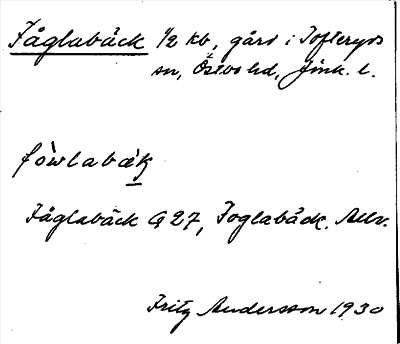 Fåglabäck 1/2 kb, gård i Tofteryds
sn, Östbo hd, Jönk. l.
fòwlabæ̀k
Fåglabäck G 27, Foglabäck. Allv.
Fritz Andersson 1930